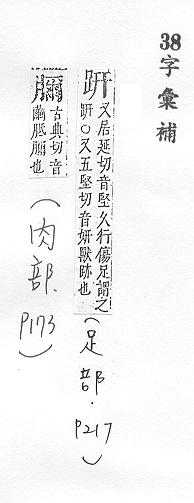 38字彙補
趼又居延切音堅久行傷足謂之
趼○又五堅切音妍獸跡也
(足部.P217)
古典切音
繭胝也
(肉部.P173)